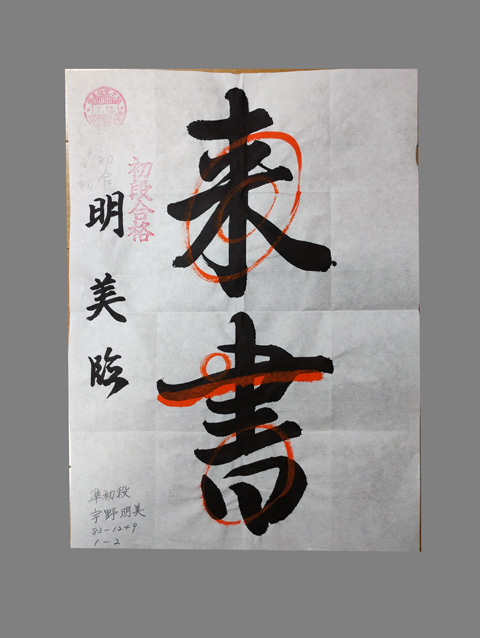 来書
初段合格
明美臨
7.12
初合
初
準初段
宇野明美
83-1249
1-2